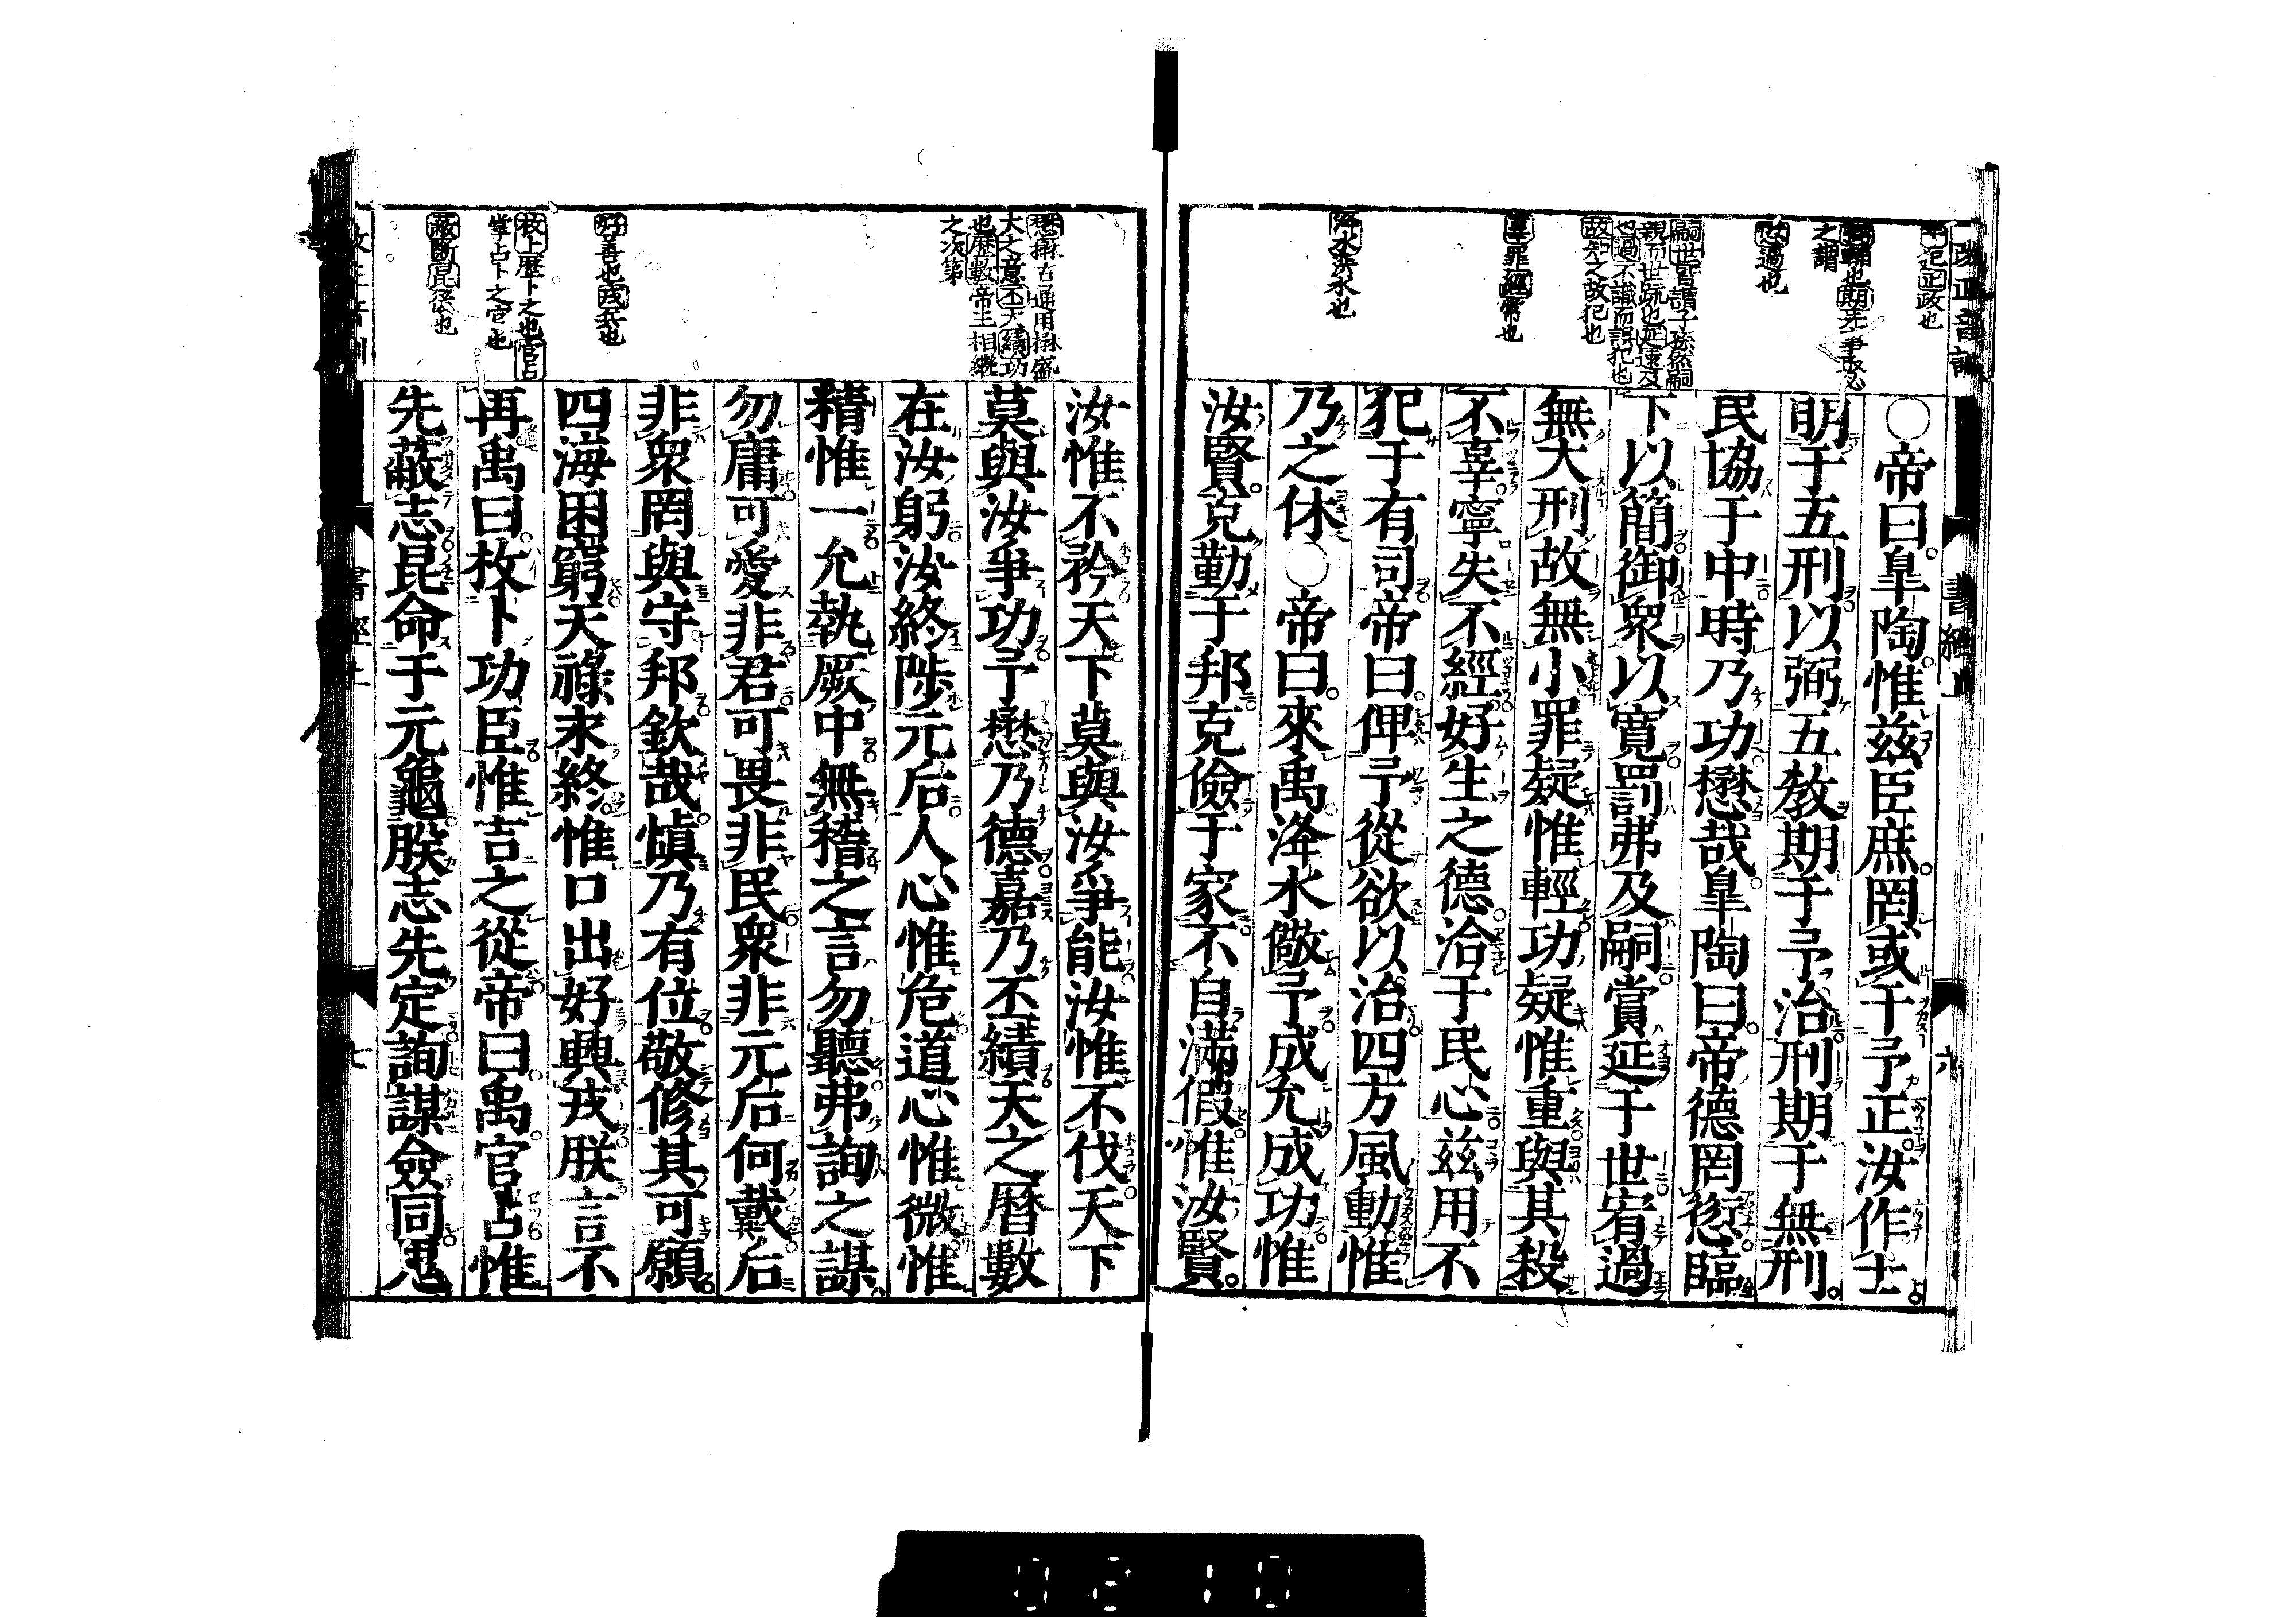 改正音訓
書經上
六
干犯正政也
弼輔也期先事取必
之謂
愆過也
嗣世皆謂子孫然嗣
親而世疏也延遠及
也過不識而誤犯也
故知之故犯也
辜罪經常也
洚水洪水也
○帝曰皐陶惟茲臣庶罔或干予正汝作士
明于五刑以弼五敎期于予治刑期于無刑
民協于中時乃功懋哉皐陶曰帝德罔愆臨
下以簡御衆以寬罰弗及嗣賞延于世宥過
無大刑故無小罪疑惟輕功疑惟重與其殺
不辜寧失不經好生之德洽于民心茲用不
犯于有司帝曰俾予從欲以治四方風動惟
乃之休○帝曰來禹洚水儆予成允成功惟
汝賢克勤于邦克儉于家不自滿假惟汝賢
懋楙古通用楙盛
大之意丕大績功
也歷數帝王相繼
之次第
好善也戎兵也
枚卜歷卜之也官占
掌占卜之官也
蔽斷昆後也
汝惟不矜天下莫與汝爭能汝惟不伐天下
莫與汝爭功予懋乃德嘉乃丕績天之曆數
在汝躬汝終陟元后人心惟危道心惟微惟
精惟一允執厥中無稽之言勿聽弗詢之謀
勿庸可愛非君可畏非民衆非元后何戴后
非衆罔與守邦欽哉愼乃有位敬修其可願
四海困窮天祿永終惟口出好興戎朕言不
再禹曰枚卜功臣惟吉之從帝曰禹官占惟
先蔽志昆命于元龜朕志先定詢謀僉同鬼
書經上
七
0210